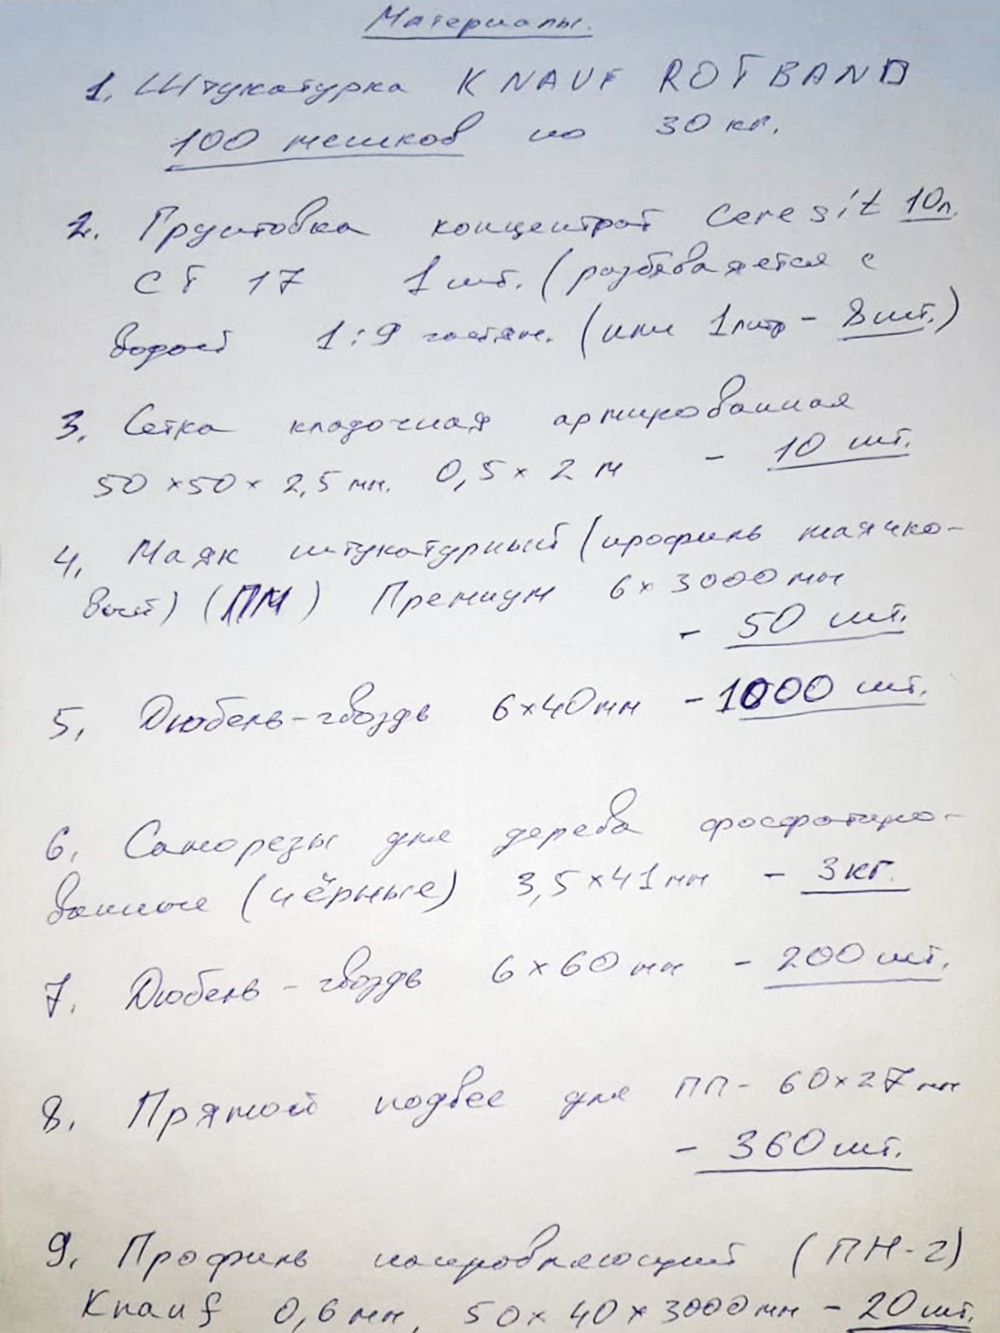 Материалы.
1. Штукатурка KNAUF ROTBAND
100 мешков по 30 кг.
2. Грунтовка концентрат Ceresit 10л.
СТ 17 1 шт. (разбавляется с
водой 1:9 частям. (или 1 литр - 8 шт.)
3. Сетка кладочная армированная
50×50×2,5 мм. 0,5×2 м - 10 шт.
4. Маяк штукатурный (профиль маячко-
вый) (ПМ) Премиум 6×3000 мм
- 50 шт.
5. Дюбель-гвоздь 6×40 мм - 1000 шт.
6. Саморезы для дерева фосфатиро-
ванные (чёрные) 3,5×41 мм - 3 кг.
7. Дюбель-гвоздь 6×60 мм - 200 шт.
8. Прямой подвес для ПП- 60×27 мм
- 360 шт.
9. Профиль направляющий (ПН-2)
Knauf 0,6 мм, 50×40×3000 мм - 20 шт.